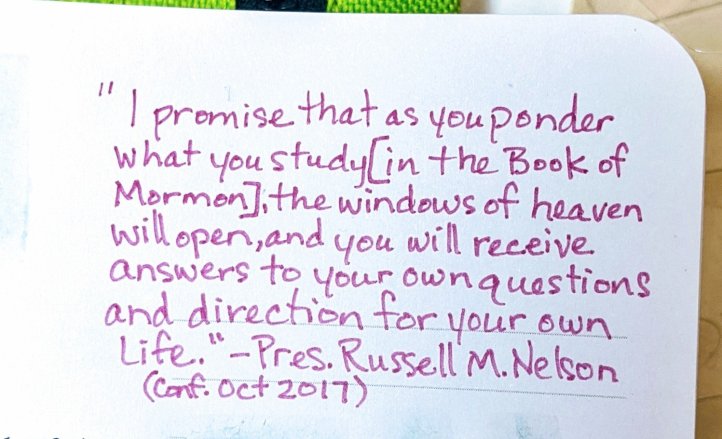 "I promise that as you ponder
what you study [in the Book of
Mormon], the windows of heaven
will open, and you will receive
answers to your own questions
and direction for your own
Life." -Pres. Russell M. Nelson
(Conf. Oct 2017)